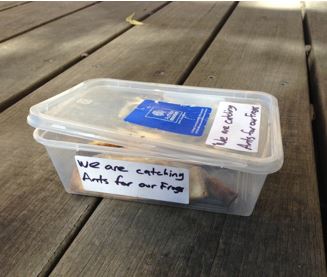 We are catching
Ants for our Frogs
We are catching
Ants for our Frogs